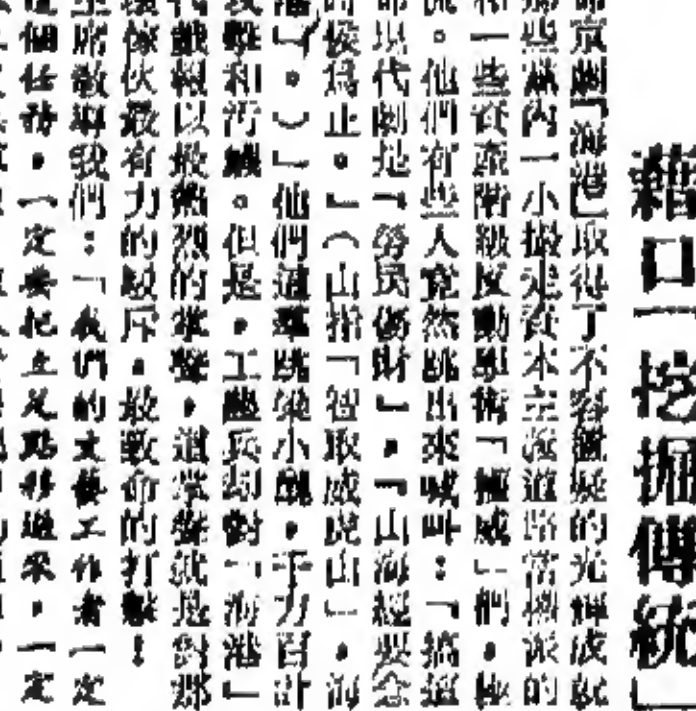 藉口「挖掘傳統」
京劇「海港」取得了不容置疑的光輝成就
些黨內一小撮走資本主義道路當權派的
和一些資產階級反動學術「權威」們，極
。他們有些人竟然跳出來喊叫：「搞這
現代劇是「勞民傷財」，「山海經要念
侯爲止。」（山指「智取威虎山」，海
」。）」他們這羣跳樑小醜，千方百計
攻擊和污衊。但是，工農兵却對「海港」
戲報以最熱烈的掌聲，這掌聲就是對那
傢伙最有力的駁斥，最致命的打擊！
主席敎導我們：「我們的文藝工作者一定
個任務，一定要把立足點移過來，一定